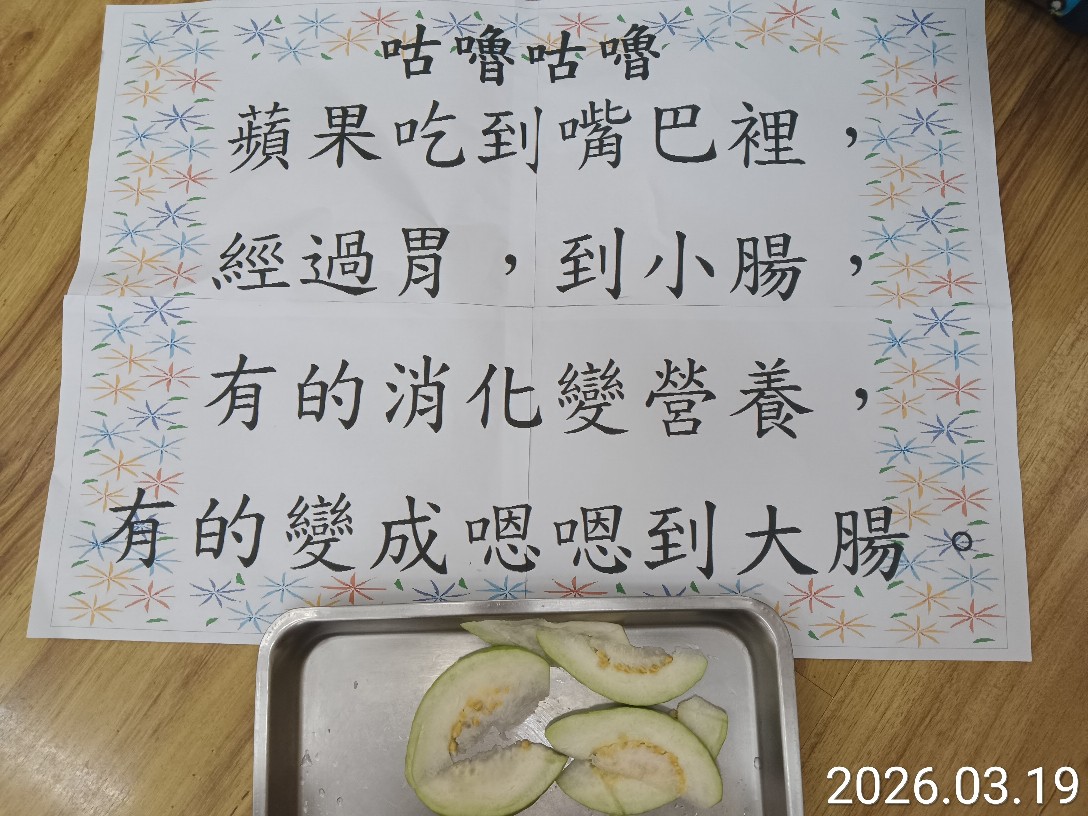 咕嚕咕嚕
蘋果吃到嘴巴裡，
經過胃，到小腸，
有的消化變營養，
有的變成嗯嗯到大腸。
2026.03.19